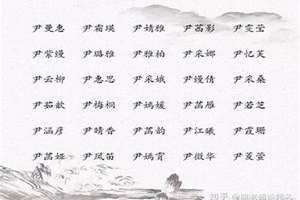 尹曼惠 尹霜瑛 尹婧雅 尹菡影 尹雯莹
尹紫嫚 尹璐雅 尹雅柏 尹采娜 尹忆芙
尹云柳 尹惠思 尹采娥 尹嫚倩 尹采桑
尹茹歆 尹梅桐 尹嫣媛 尹菡雁 尹若芝
尹涵彦 尹晴香 尹菡韵 尹江曦 尹霞珊
尹菡娅 尹凤苗 尹嫣霄 尹微华 尹菱萱
知乎